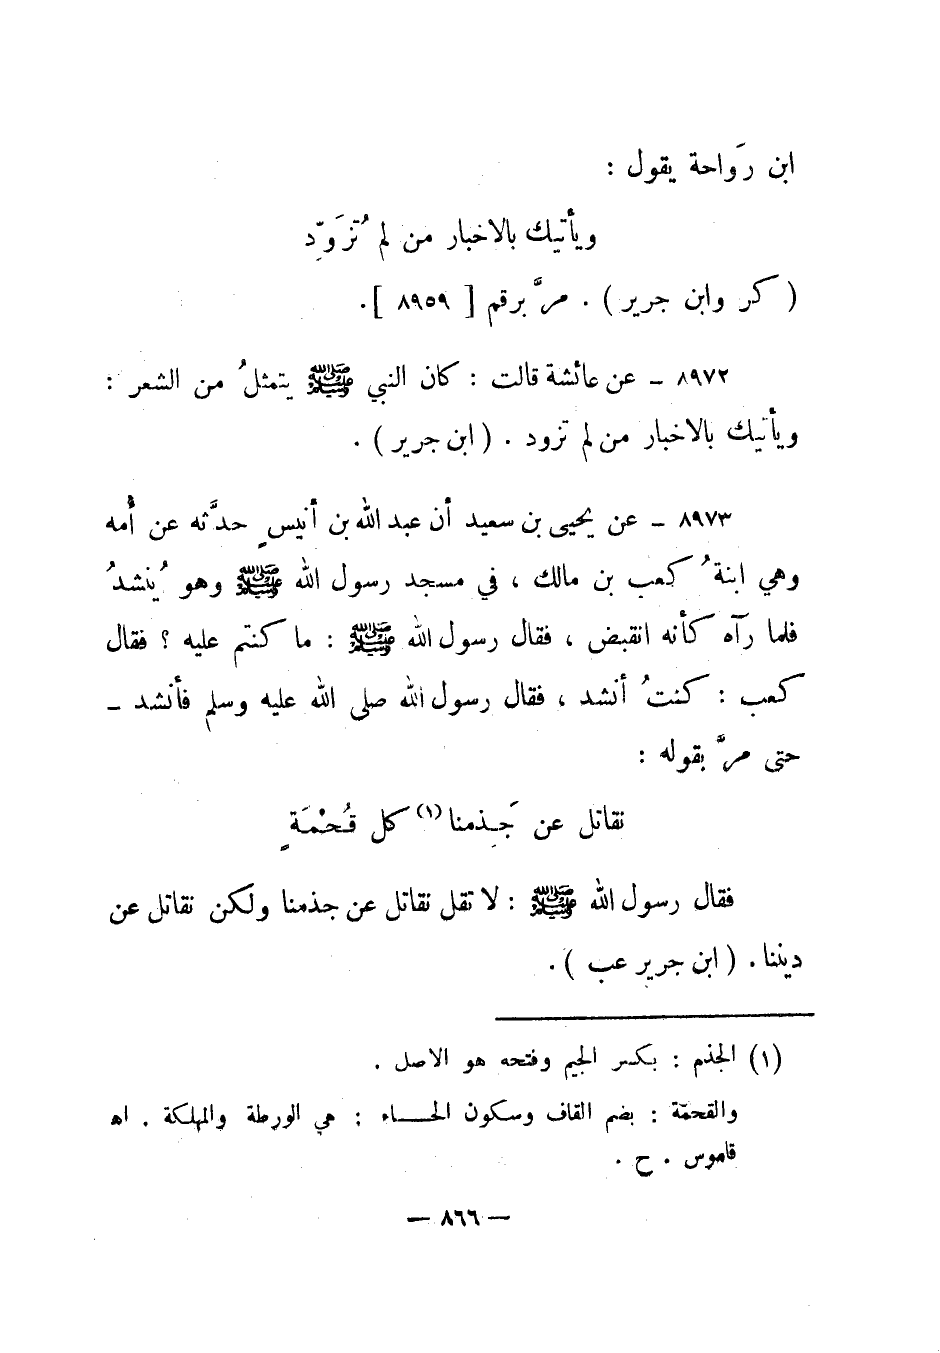 ابن رَواحة يقول :
ويأتيك بالاخبار من لم تُزَوِّد
( كر وابن جرير ) . مرَّ برقم [ ٨٩٥٩ ] .
٨٩٧٢ ــ عن عائشة قالت : كان النبي ﷺ يتمثلُ من الشعر :
ويأتيك بالاخبار من لم تزود . ( ابن جرير ) .
٨٩٧٣ ــ عن يحيى بن سعيد أن عبد الله بن أنيسٍ حدَّثه عن أُمه
وهي ابنةُ كعب بن مالك ، في مسجد رسول الله ﷺ وهو يُنشدُ
فلما رآه كأنه انقبض ، فقال رسول الله ﷺ : ما كنتم عليه ؟ فقال
كعب : كنتُ أنشد ، فقال رسول الله صلى الله عليه وسلم فأنشد ــ
حتى مرَّ بقوله :
نقاتل عن جَِذمنا (١) كل قُحْمَةٍ
فقال رسول الله ﷺ : لا تقل نقاتل عن جذمنا ولكن نقاتل عن
ديننا . ( ابن جرير عب ) .
(١) الجذم : بكسر الجيم وفتحه هو الاصل .
والقحمة : بضم القاف وسكون الحــاء : هي الورطة والمهلكة . اه
قاموس . ح .
— ٨٦٦ —